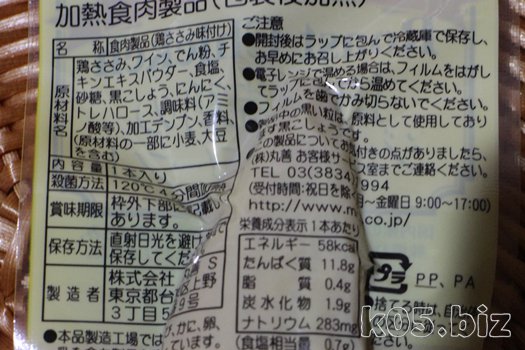 加熱食肉製品(包装後加熱)
名 称 食肉製品(鶏ささみ味付け)
原材料名
鶏ささみ、ワイン、でん粉、チ
キンエキスパウダー、食塩、
砂糖、黒こしょう、にんにく、
トレハロース、調味料(アミ
ノ酸等)、加工デンプン、香料、
(原材料の一部に小麦、大豆
を含む)
内 容 量 1本入り
殺菌方法 120℃4分間
賞味期限 枠外下部に記載し
てあります。
保存方法 直射日光を避け
保存して
製 造 者 株式会社
東京都台 上野
3丁目5 9号
●本品製造工場では
かに、卵、
ご注意
●開封後はラップに包んで冷蔵庫で保存し、
お早めにお召し上がりください。
●電子レンジで温める場合は、フィルムをはがし
てラップに包んでから温めてください。
●フィルムを歯でかみ切らないでください。
中の黒い粒は、原料として使用しており
ます黒こしょうです。
付きの点がありましたら、
(株)丸善 お客様 室までご連絡ください。
TEL 03(3834) 994
(受付時間:祝日を除 月~金曜日 9:00~17:00)
http://www.m co.jp/
栄養成分表示 1本あたり
エネルギー 58kcal
たんぱく質 11.8g
脂 質 0.4g
炭水化物 1.9g
ナトリウム 283mg
(食塩相当量 0.7g)
プラ PP、PA
●捨てる時は、自
k05.biz